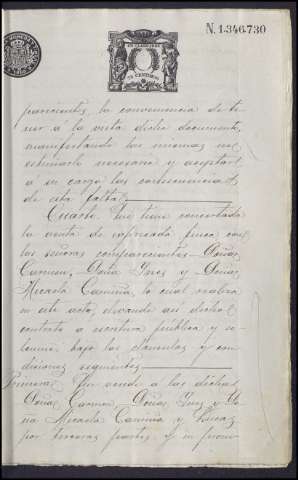 N. 1.346.730
parecientes, la conveniencia de te-
ner á la vista dicho documento,
manifestando las mismas no
estimarlo necesario y aceptan
á su cargo las consecuencias
de esta falta.
Cuarto. Que tiene concertada
la venta de expresada finca con
las señoras comparecientes Doña
Carmen, Doña Ines y Doña
Micaela Camiña, lo cual realiza
en este acto, elevando así dicho
contrato a escritura pública y so-
lemne, bajo las cláusulas y con-
diciones siguientes
Primera. Que vende a las dichas
Doña Carmen, Doña Ines y Do-
ña Micaela Camiña y
por terceras partes, y en